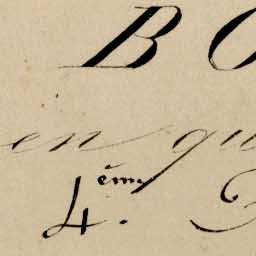 BO
en qu
4.ème